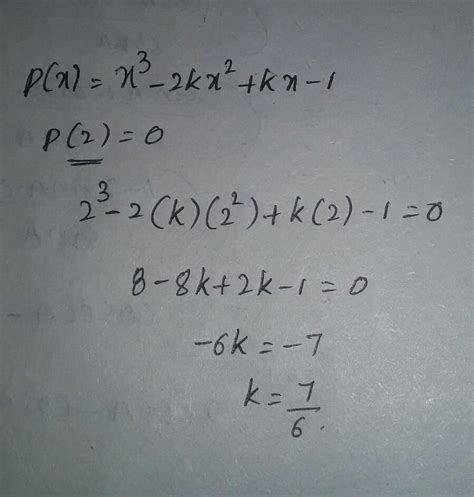 P(x) = x³ - 2kx² + kx - 1
P(2) = 0
2³ - 2(k)(2²) + k(2) - 1 = 0
8 - 8k + 2k - 1 = 0
-6k = -7
k = 7/6.